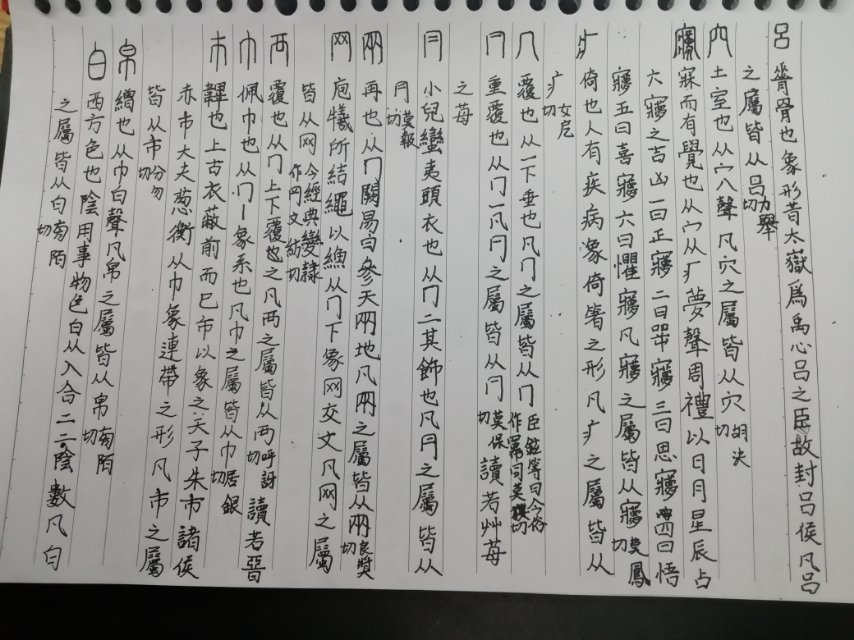 呂脊骨也象形昔太嶽爲禹心呂之臣故封呂侯凡呂
之屬皆从呂力舉切
穴土室也从宀八聲凡穴之屬皆从穴胡決切
㝱寐而有覺也从宀从疒夢聲周禮以日月星辰占
六㝱之吉凶一曰正㝱二曰㖾㝱三曰思㝱四曰悟
㝱五曰喜㝱六曰懼㝱凡㝱之屬皆从㝱莫鳳切
疒倚也人有疾病象倚箸之形凡疒之屬皆从
疒女戹切
冖覆也从一下垂也凡冖之屬皆从冖臣鉉等曰今俗作冪同莫狄切
冃重覆也从冖一凡冃之屬皆从冃莫保切讀若艸莓
之莓
冃小兒蠻夷頭衣也从冖二其飾也凡冃之屬皆从
冃莫報切
㒳再也从冂闕易曰參天㒳地凡㒳之屬皆从㒳良奬切
网庖犧所結繩以漁从冂下象网交文凡网之屬
皆从网今經典變隸作罓文紡切
襾覆也从冂上下覆之凡襾之屬皆从襾呼訝切讀若晉
巾佩巾也从冂丨象系也凡巾之屬皆从巾居銀切
巿韠也上古衣蔽前而已巿以象之天子朱巿諸侯
赤巿大夫葱衡从巾象連帶之形凡巿之屬
皆从巿分勿切
帛繒也从巾白聲凡帛之屬皆从帛旁陌切
白西方色也陰用事物色白从入合二二陰數凡白
之屬皆从白旁陌切